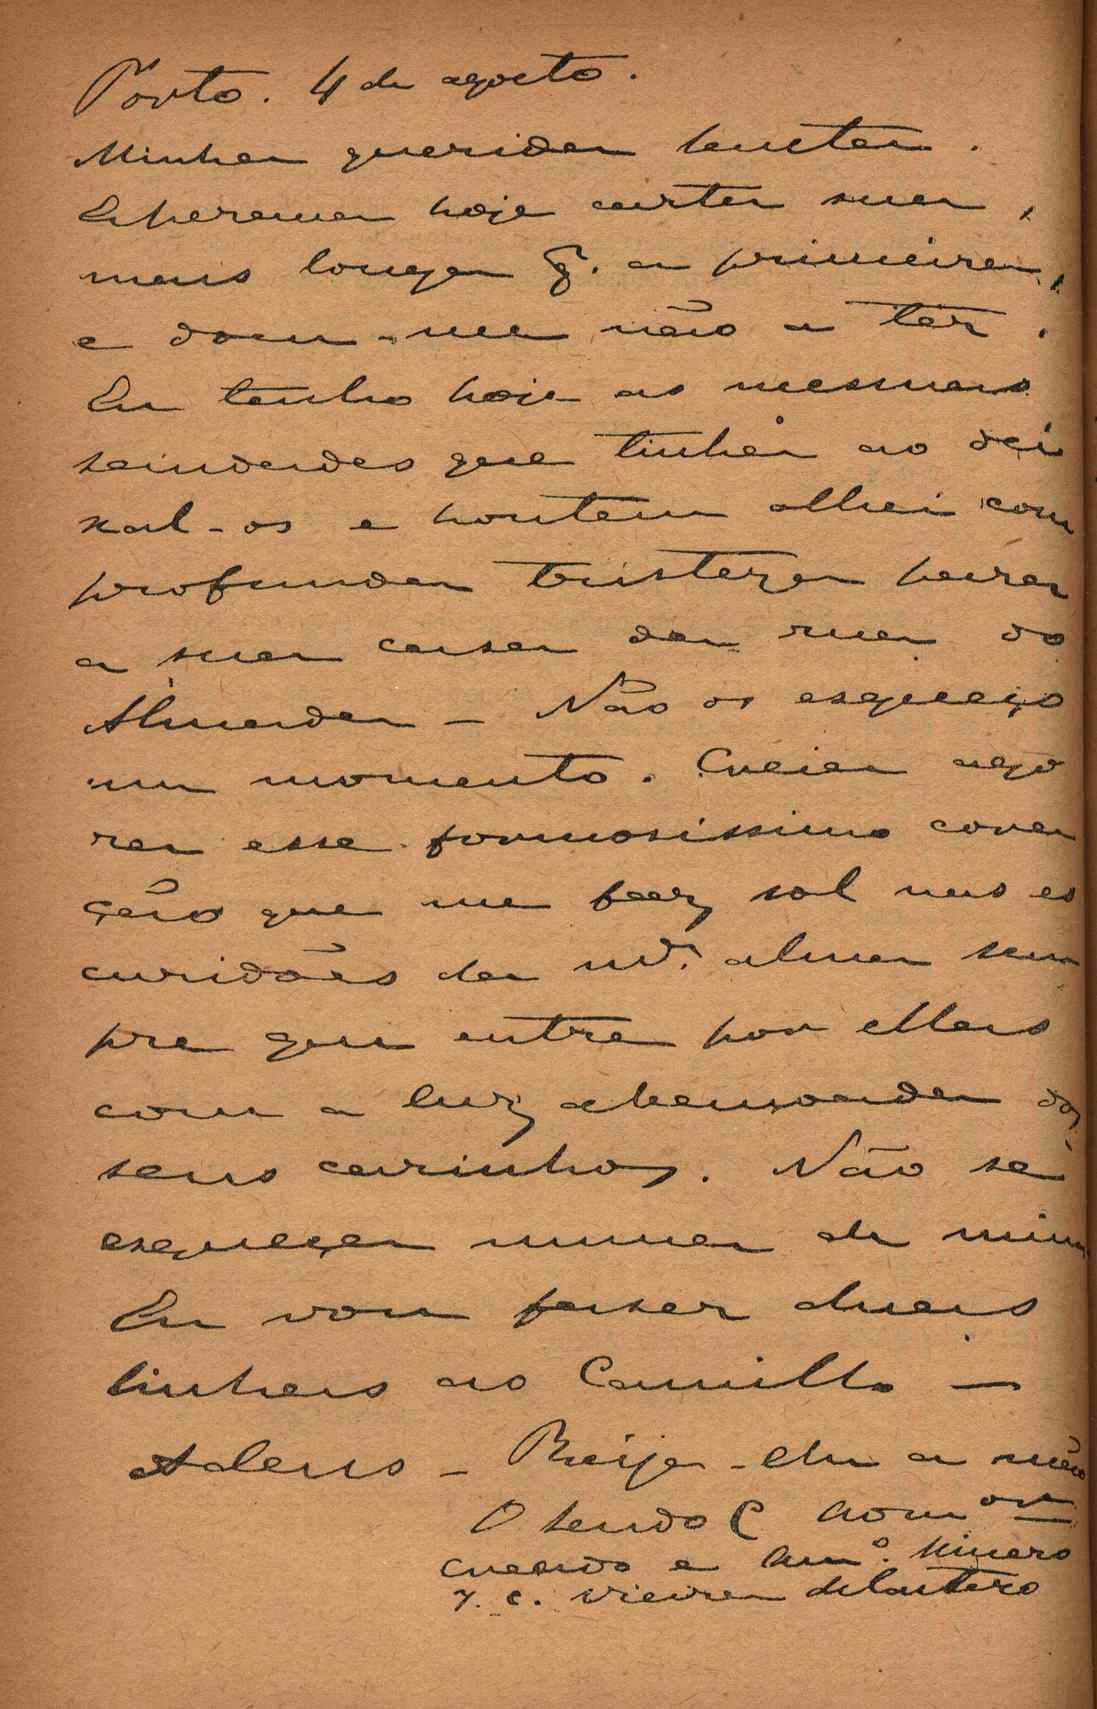 Porto. 4 de agosto.
Minha querida santa.
Esperava hoje carta sua,
mais longa q. a primeira,
e doeu-me não a ter.
Eu tenho hoje as mesmas
saudades que tinha ao dei
xal-os e hontem olhei com
profunda tristeza para
a sua casa da rua do
Almada — Não os esqueço
um momento. Creia ago
ra esse formosissimo cora
ção que me faz sol nas es
curidões da m.ª alma sem
pre que entra por ellas
com a luz abençoada dos
seus carinhos. Não se
esqueça nunca de mim
Eu vou faser duas
linhas ao Camillo —
Adeus — Beija-lhe a mão
O seu do C.
creado e am.º sincero
J. C. Vieira de Castro